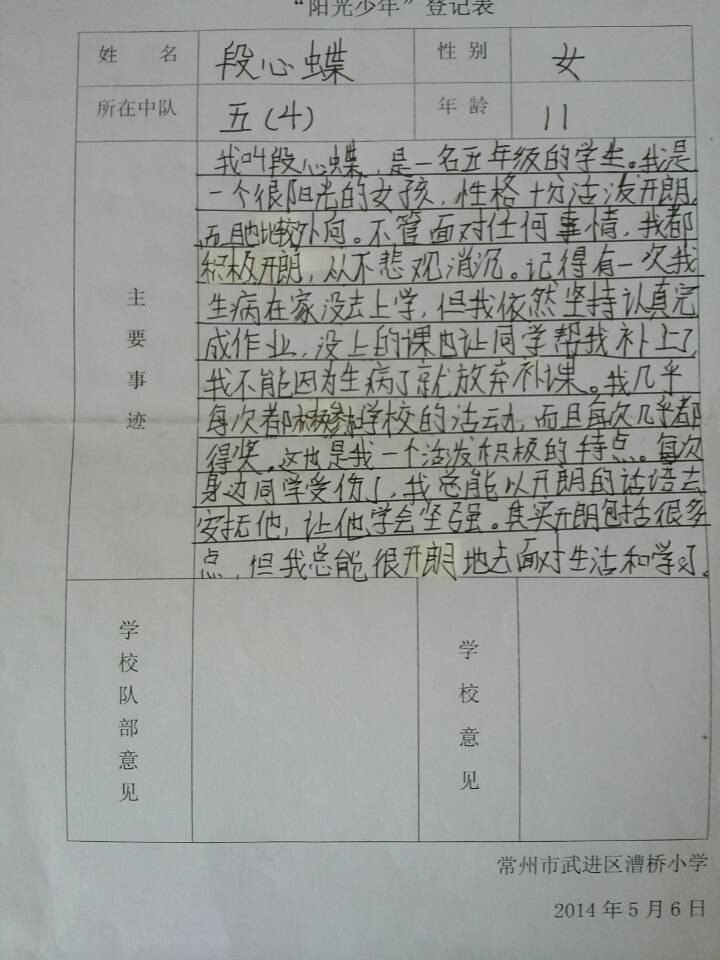 “阳光少年”登记表
姓 名 段心蝶 性 别 女
所在中队 五(4) 年 龄 11
主要事迹
我叫段心蝶,是一名五年级的学生。我是
一个很阳光的女孩,性格十分活泼开朗,
而且也比较外向。不管面对任何事情,我都
积极开朗,从不悲观消沉。记得有一次我
生病在家没去上学,但我依然坚持认真完
成作业,没上的课也让同学帮我补上了,
我不能因为生病了就放弃补课。我几乎
每次都积极参加学校的活动,而且每次几乎都
得奖。这也是我一个活泼积极的特点。每次
身边同学受伤了,我总能以开朗的话语去
安抚他,让他学会坚强。其实开朗包括很多
点,但我总能很开朗地去面对生活和学习。
学校队部意见
学校意见
常州市武进区漕桥小学
2014年5月6日